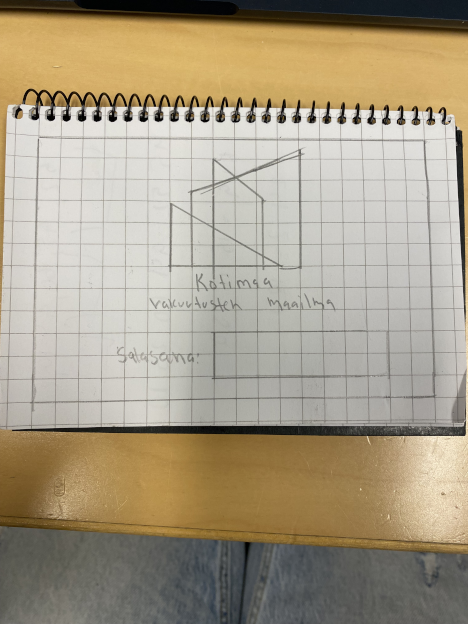 Kotimaa
vakuutusten maailma
Salasana: